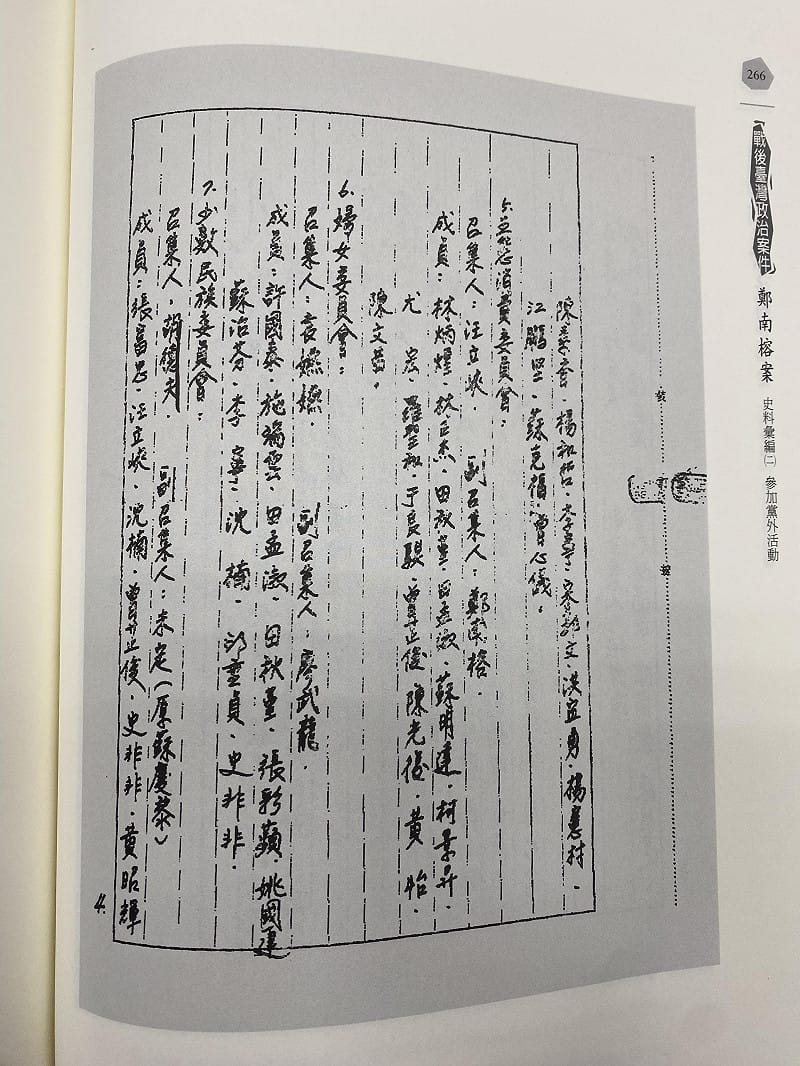 266
戰後臺灣政治案件
鄭南榕案
史料彙編㈡
參加黨外活動
裝
陳 楊祖珺 李 文.洪 勇.楊 村.
江鵬堅.蘇克福.曾心儀.
5.生態消費委員會:
召集人:汪立峽. 副召集人:鄭南榕.
成員:林炳煌.林正杰.田秋堇.田孟淑.蘇明達.柯景昇.
尤宏.羅聖 .于良騏.曾正俊.陳光復.黃怡.
陳文茜.
6.婦女委員會:
召集人:袁嬿嬿. 副召集人:廖武龍.
成員:許國泰.施瑞雲.田孟淑.田秋堇.張彩蘋.姚國建
蘇治芬.李寧.沈楠.邱垂貞.史非非.
7.少數民族委員會:
召集人:胡德夫. 副召集人:未定(原蘇慶黎)
成員:張富忠.汪立峽.沈楠.曾正俊.史非非.黃昭輝
4.